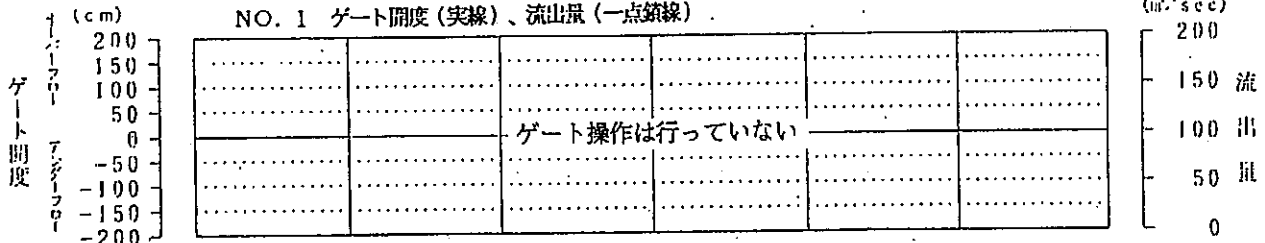 (cm)
NO. 1 ゲート開度(実線)、流出量(一点鎖線)
(m³/sec)
オーバーフロー
アンダーフロー
ゲート開度
200
150
100
50
0
-50
-100
-150
-200
ゲート操作は行っていない
200
150
100
50
0
流出量